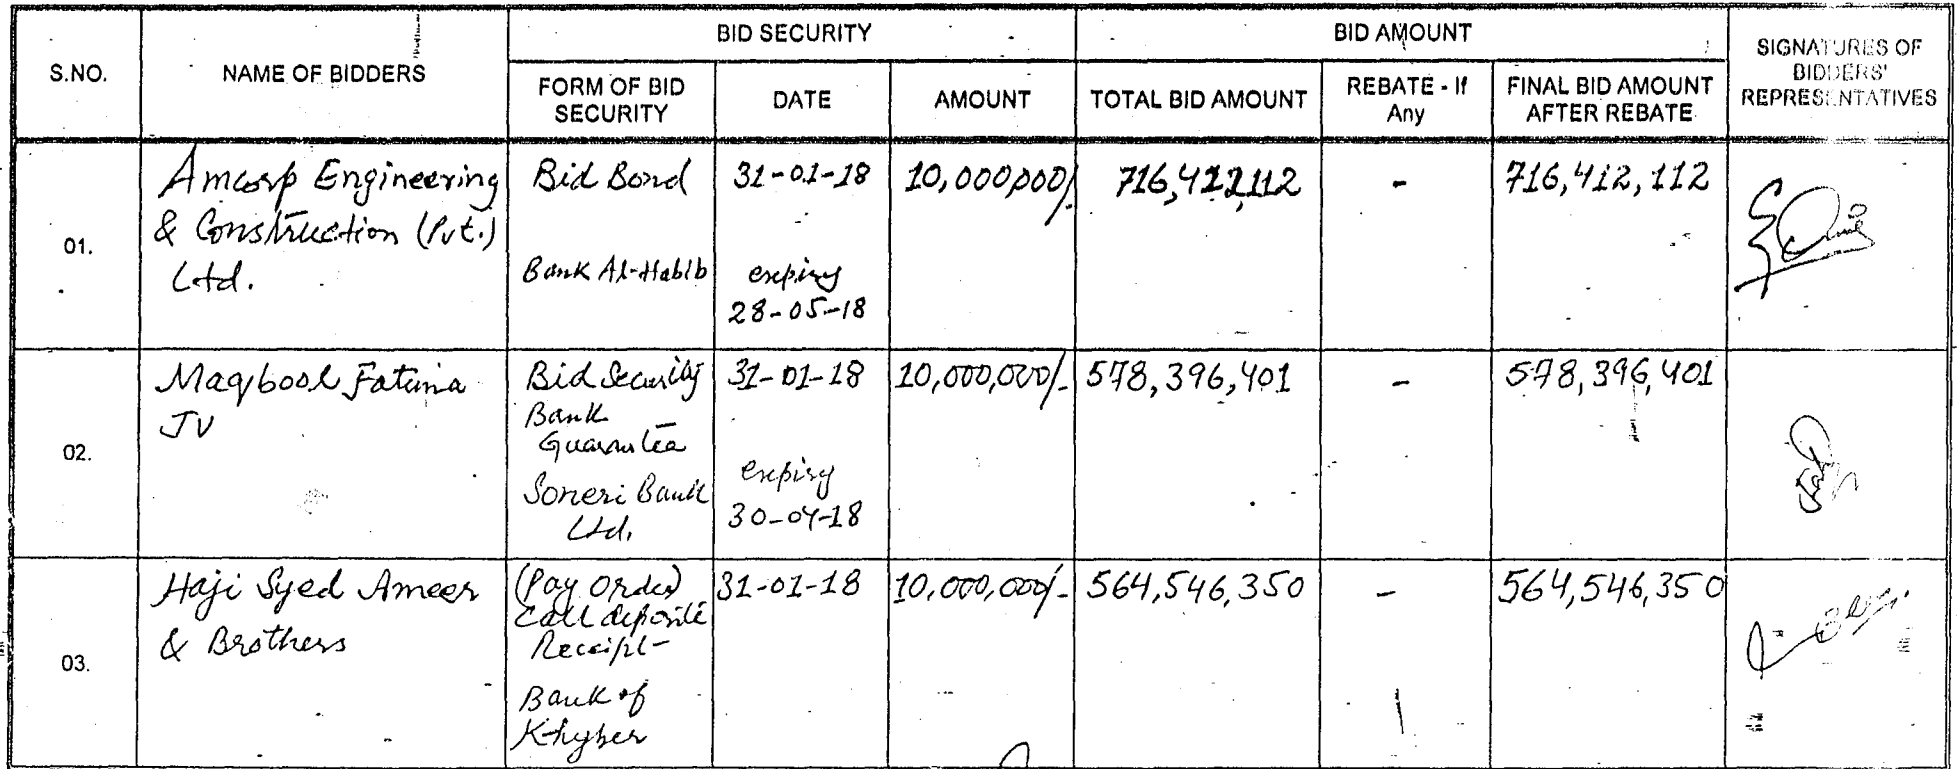 S.NO.
NAME OF BIDDERS
BID SECURITY
BID AMOUNT
SIGNATURES OF
BIDDERS'
REPRESENTATIVES
FORM OF BID
SECURITY
DATE
AMOUNT
TOTAL BID AMOUNT
REBATE - If
Any
FINAL BID AMOUNT
AFTER REBATE
01.
Amcorp Engineering
& Construction (Pvt.)
Ltd.
Bid Bond
Bank Al-Habib
31-01-18
expiry
28-05-18
10,000,000/
716,412,112
-
716,412,112
02.
Maqbool Fatima
JV
Bid Security
Bank
Guarantee
Soneri Bank
Ltd.
31-01-18
expiry
30-04-18
10,000,000/-
578,396,401
-
578,396,401
03.
Haji Syed Ameer
& Brothers
(Pay Order)
Call deposite
Receipt-
Bank of
Khyber
31-01-18
10,000,000/-
564,546,350
-
564,546,350